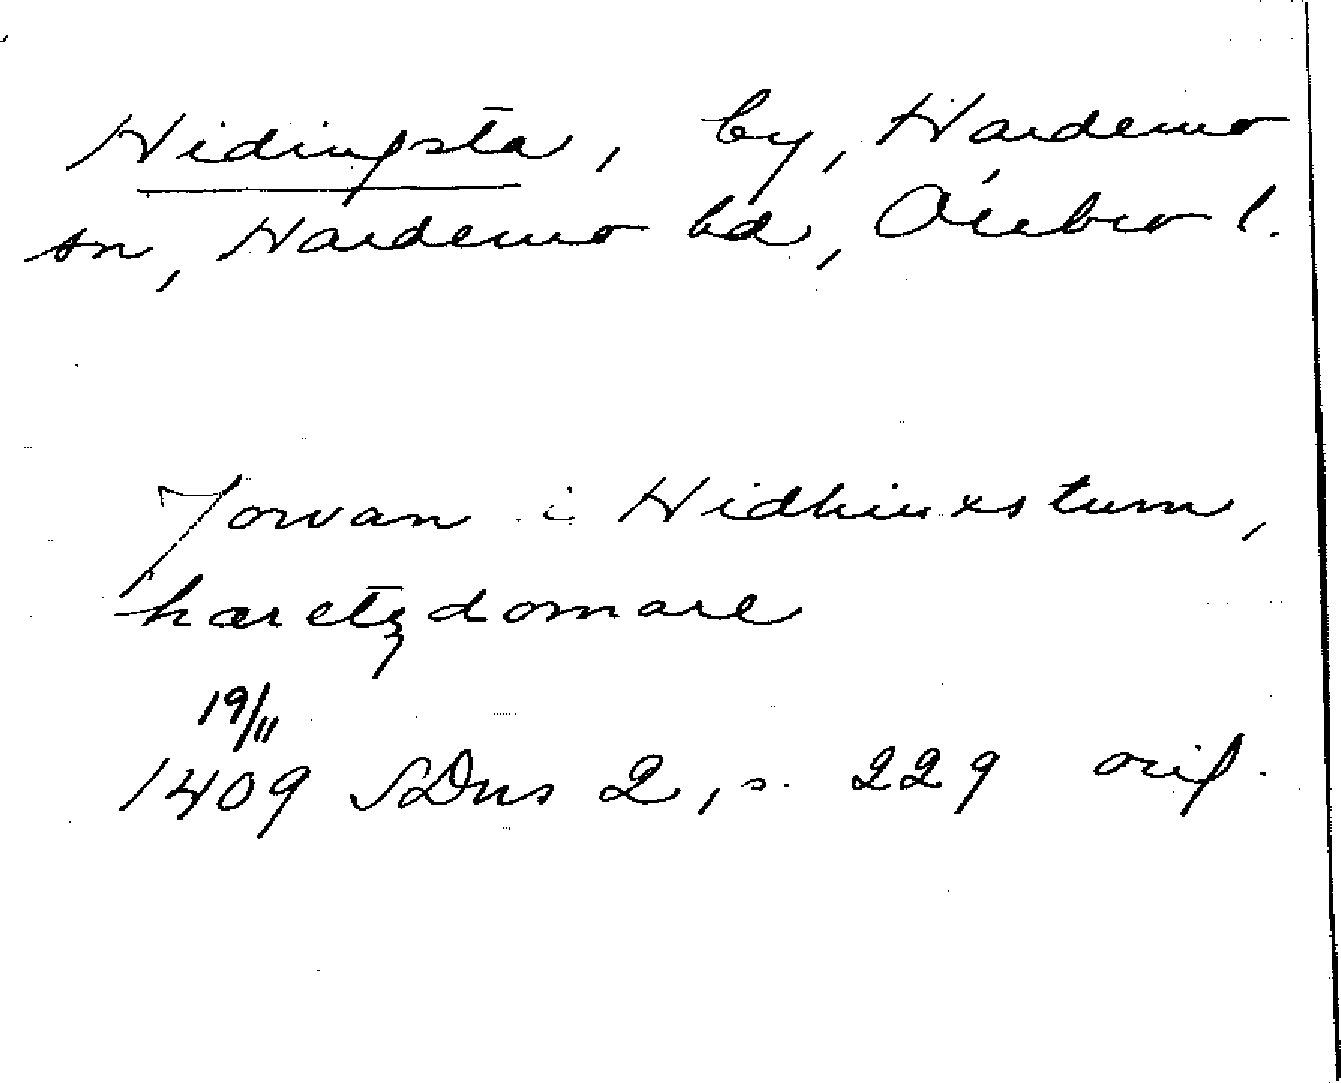 Hidingsta, by, Hardemo
sn, Hardemo hd, Örebro l.
Jowan i Hidhinxstum,
hæretzdomare
19/11
1409 SDns 2, s. 229 orig.